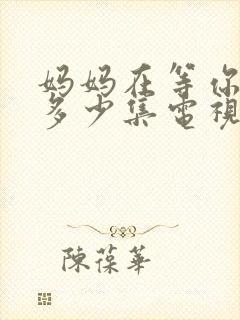 妈妈在等你
多少集電視
陳葆華